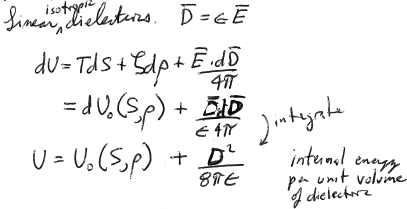 Linear isotropic dielectrics. D̅ = ϵ E̅
dU = TdS + ζdρ + E̅ · dD̅ / 4π
= dU₀(S,ρ) + D̅dD̅ / ϵ 4π
integrate
U = U₀(S,ρ) + D² / 8πϵ
internal energy
per unit volume
of dielectric